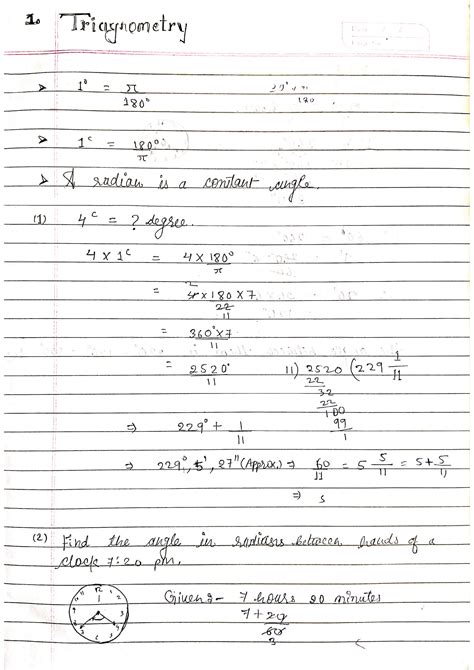 1. Triagnometry
➢ 1° = π/180°
➢ 1ᶜ = 180°/π
➢ A radian is a constant angle.
(1) 4ᶜ = ? degree.
4 × 1ᶜ = 4 × 180°/π
= 4 × 180 × 7/22 2 11
= 360° × 7/11
= 2520°/11 11) 2520 (229 1/11
22
32
22
100
99
1
⇒ 229° + 1/11
⇒ 229°, 5', 27" (Approx.) ⇒ 60/11 = 5 5/11 = 5 + 5/11
⇒ 5
(2) Find the angle in radians between hands of a
clock 7:20 pm.
Given:- 7 hours 20 minutes
7 + 20/60 3